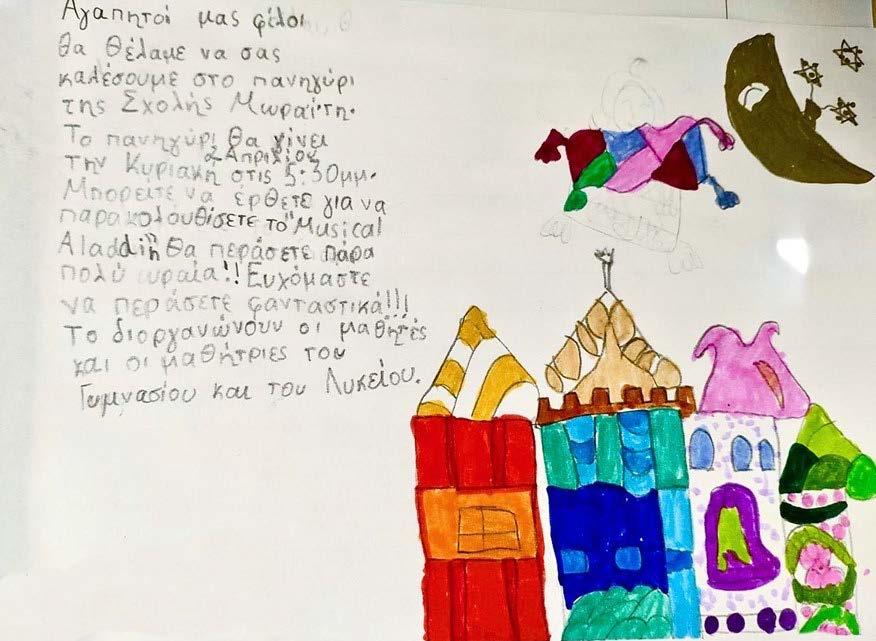 Αγαπητοί μας φίλοι
θα θέλαμε να σας
καλέσουμε στο πανηγύρι
της Σχολής Μωραΐτη.
Το πανηγύρι θα γίνει
2 Απριλίου
την Κυριακή στις 5:30μμ.
Μπορείτε να έρθετε για να
παρακολουθίσετε το "Musical
Aladdin" Θα περάσετε πάρα
πολύ ωραία!! Ευχόμαστε
να περάσετε φανταστικά!!!
Το διοργανώνουν οι μαθητές
και οι μαθήτριες του
Γυμνασίου και του Λυκείου.